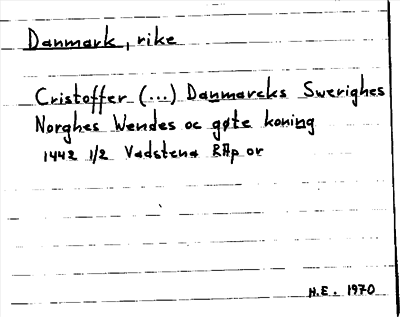 Danmark, rike
Cristoffer (...) Danmarcks Swerighes
Norghes Wendes oc gøte koning
1442 1/2 Vadstena RAp or
H.E. 1970